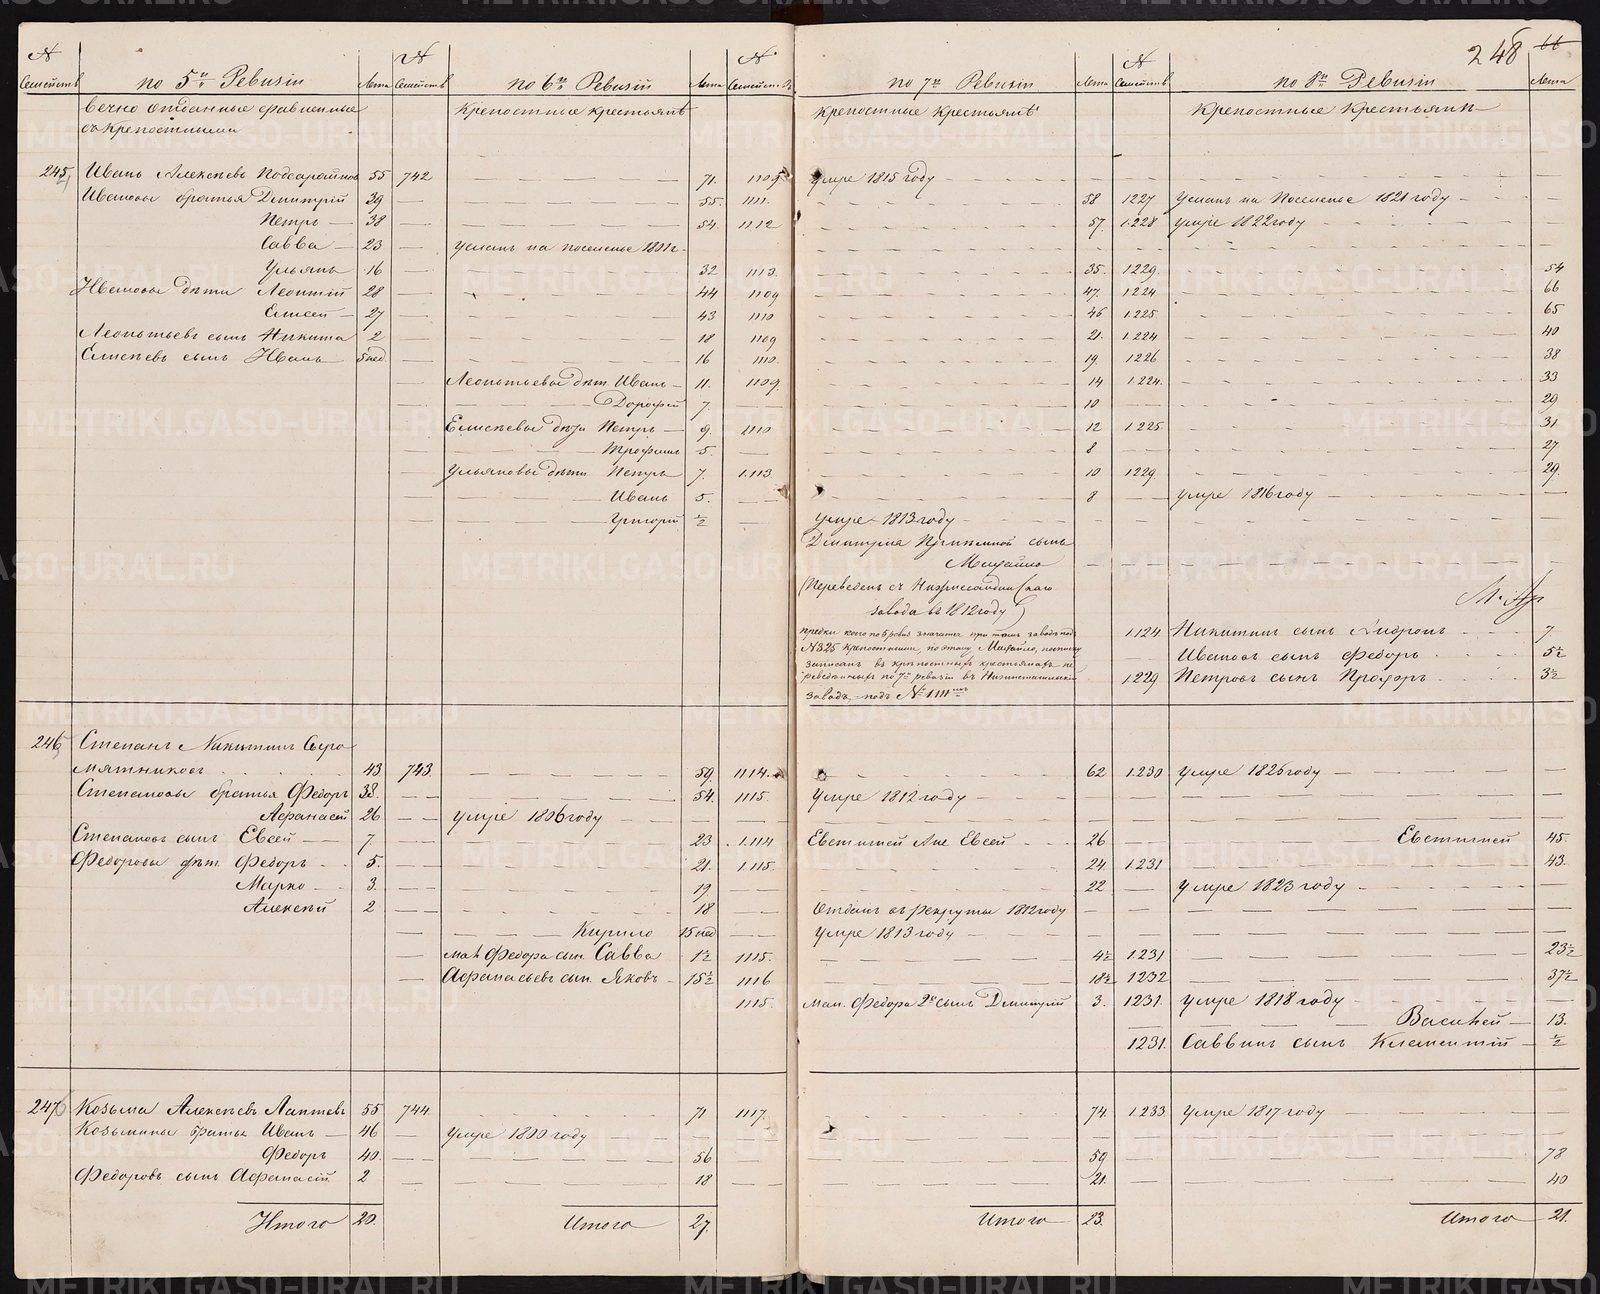 248 66
№ Семейств по 5й Ревизiи Лета № Семейств по 6й Ревизiи Лета № Семейств по 7й Ревизiи Лета № Семейств по 8й Ревизiи Лета
Вечно отданные сравненные Крепостные крестьянѣ Крепостные крестьянѣ Крепостные Крестьянѣ
съ крепостными
245 Иванъ Алексѣевъ 55 742 71. 1109 умре 1815 году
Ивановы братья Дмитрiй 39 55. 1111. 58 1227 1821 году
Петръ 38 54. 1112 57. 1228 умре 1822 году
Савва 23 на поселенье 1801 г.
Ульянъ 16 32 1113. 35. 1229. 54
Ивановы дѣти Леонтiй 28 44 1109 47. 1224 66
Елисей 27 43 1110 46 1225. 65
Леонтьевъ сынъ Никита 2 18 1109 21. 1224 40
Елисѣевъ сынъ Иванъ 5 нед 16 1110. 19 1226 38
Леонтьевы дѣт. Иванъ 11. 1109. 14 1224. 33
Дорофей 7. 10 29
Елисѣевы дѣти Петръ 9. 1110 12 1225 31
Трофимъ 5. 8 27
Ульяновы дѣти Петръ 7. 1113. 10 1229. 29.
Иванъ 5. 8 умре 1816 году
Григорiй ½ умре 1813 году
Дмитрiя Прiемной сынъ
Михайло
(Переведенъ съ
завода въ 1812 году)
1124 Никитинъ сынъ 7.
Ивановъ сынъ Федоръ 5½
1229 Петровъ сынъ Прохоръ 3½
заводъ подъ № 1111
246 Степанъ Никитинъ Сыро
мятниковъ 43 743. 59. 1114. 62 1230 умре 1826 году
Степановы братья Федоръ 38. 54. 1115. умре 1812 году
Афанасей 26 умре 1806 году
Степановъ сынъ Евсей 7 23 1114 Евстигней Ане Евсей 26 Евстигней 45.
Федоровы дѣт. Федоръ 5. 21. 1115. 24. 1231 43.
Марко 3. 19. 22 умре 1823 году
Алексѣй 2 18 Отданъ въ рекруты 1812 году
Кирило 15 нед умре 1813 году
Федора сын. Савва 1½ 1115. 4½ 1231 23½
Афанасьевъ сын. Яковъ 15½ 1116 18½ 1232 37½
1115. Федора 2й сынъ Дмитрiй 3. 1231. умре 1818 году
Василей 13.
1231. Саввинъ сынъ Климентiй ½
247 Козьма Алексѣевъ Лаптевъ 55 744. 71 1117. 74. 1233 умре 1817 году
Козьмины братья Иванъ 46 умре 1800 году
Федоръ 40. 56 59 78
Федоровъ сынъ Афанасiй 2 18 21. 40
Итого 20. Итого 27. Итого 23. Итого 21.
METRIKI.GASO-URAL.RU